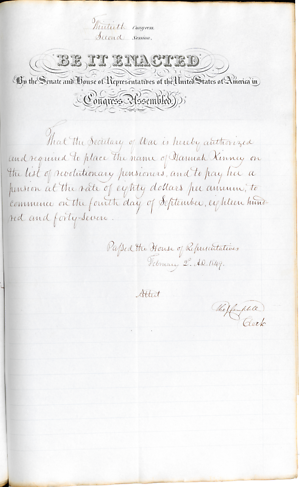 Thirtieth Congress
Second Session.
BE IT ENACTED
By the Senate and House of Representatives of the United States of America in
Congress Assembled,
That the Secretary of War is hereby authorized
and required to place the name of Hannah Kinney on
the list of revolutionary pensioners, and to pay her a
pension at the rate of eighty dollars per annum; to
commence on the fourth day of September, eighteen hund-
red and forty-seven.
Passed the House of Representatives
February 2d. AD. 1849.
Attest
Clerk